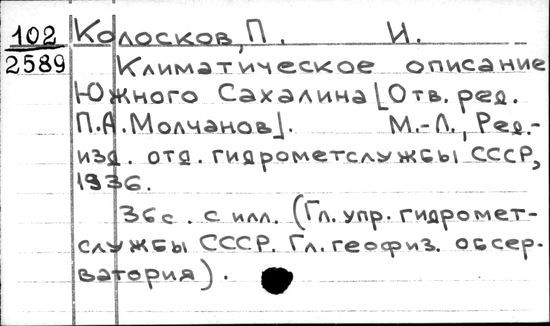 102 Колосков, П. И.
2589 Климатическое описание
Южного Сахалина [Отв. ред.
П.А. Молчанов]. М.-Л., Ред.-
изд. отд. гидрометслужбы СССР,
1936.
36с. с илл. (Гл. упр. гидромет-
службы СССР. Гл. геофиз. обсер-
ватория).